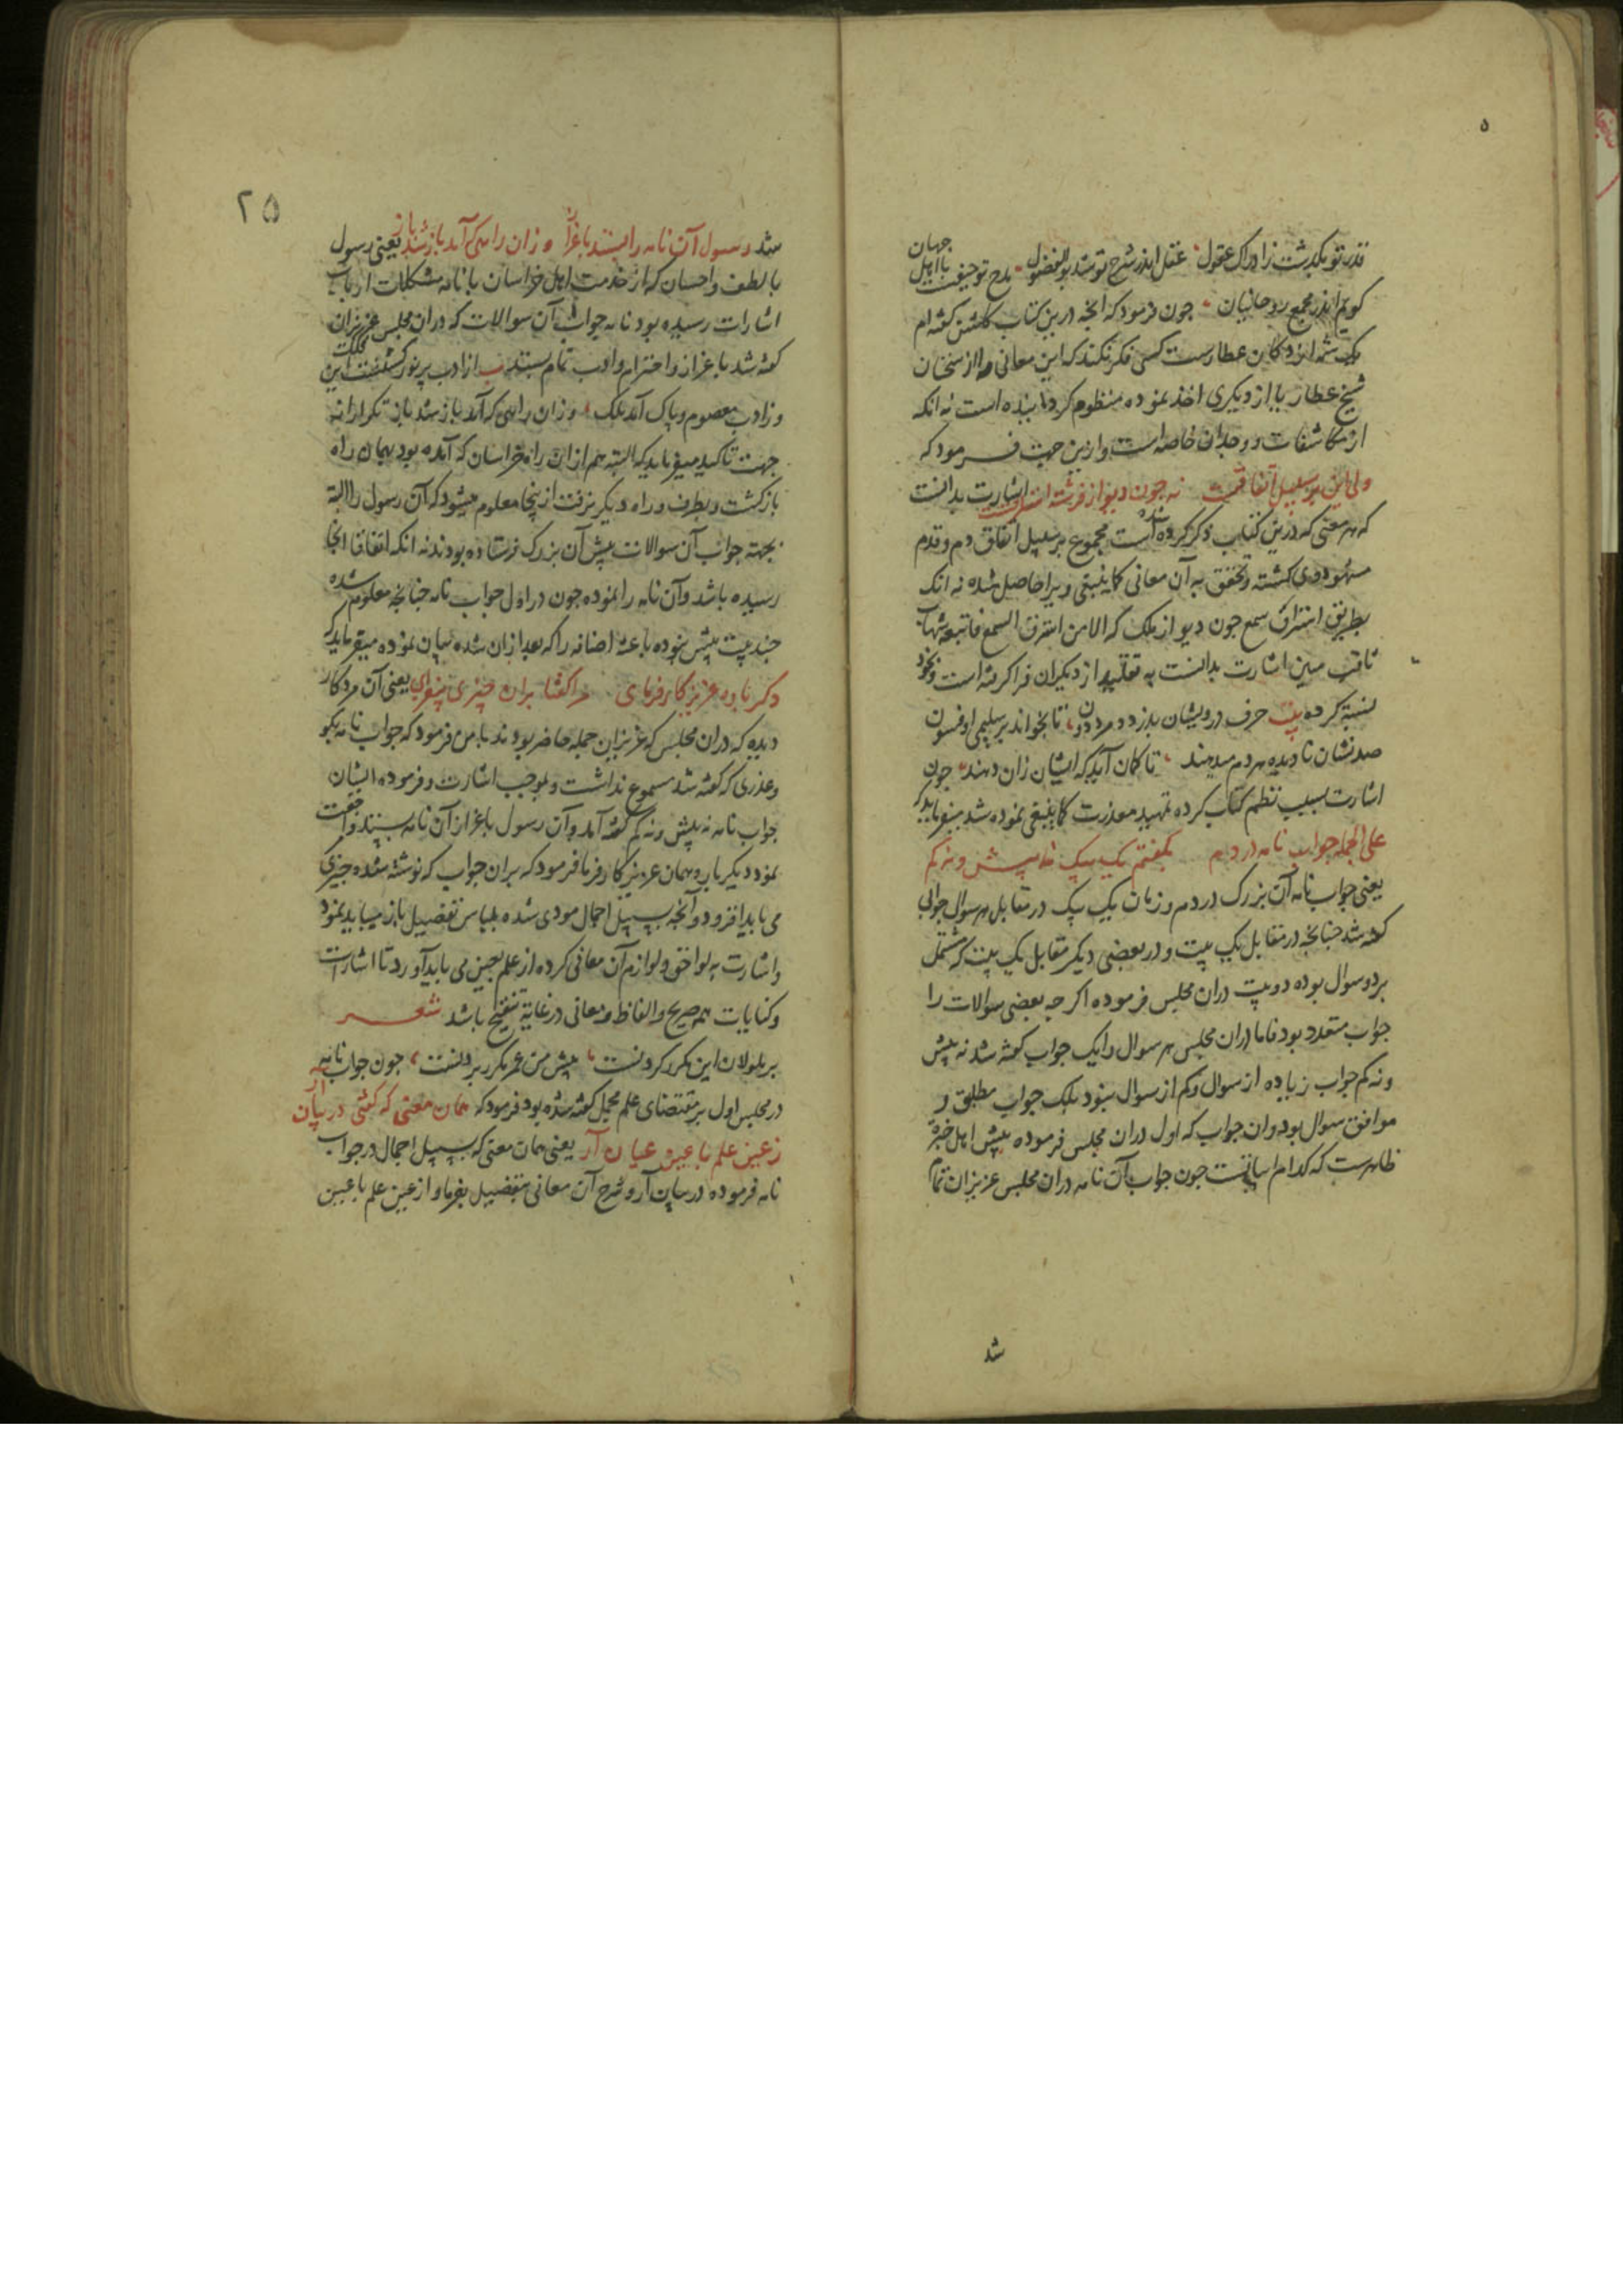 ۵
قدر تو بگذشت از ادراک عقول عقل اندر شرح تو شد بوالفضول مدح تو حیفست با اهل جهان
کویم اندر مجمع روحانیان جون فرمود که انجه درین کتاب کلشن کفته ام
یک شمه از دکان عطارست کسی فکر نکند که این معانی را از سخنان
شیخ عطار یا از دیکری اخذ نموده منظوم کردانیده است نه انکه
از مکاشفات و وجدان خاصه است و ازین جهت فرمود که
ولی این بر سبیل اتفاقست نه جون دیو از فرشته استراقست اشارت بدانست
که هر معنی که درین کتاب ذکر کرده شده است مجموع بر سبیل اتفاق دم و قدم
مشهود وی کشته و تحقق به آن معانی کما ینبغی ویرا حاصل شده نه انک
بطریق استراق سمع جون دیو از ملک که الا من استرق السمع فاتبعه شهاب
ثاقب مبین اشارت بدانست به تقلید از دیکران فرا کرفته است و بخود
نسبة کرده بیت حرف درویشان بدزدد مرد دون تا بخواند بر سلیمی او فسون
صد نشان نادیده هر دم میدهند تا کمان آید که ایشان زان دهند جون
اشارت بسبب نظم کتاب کرده تمهید معذرت کما ینبغی نموده شد میفرماید که
علی الجمله جواب نامه در دم بکفتم یک بیک نه بیش و نه کم
یعنی جواب نامه آن بزرک در دم و زمان یک بیک در مقابل هر سوال جوابی
کفته شد جنانجه در مقابل یک بیت و در بعضی دیکر مقابل یک بیت که مشتمل
بر دو سوال بوده دو بیت دران مجلس فرموده اکر جه بعضی سوالات را
جواب متعدد بود فاما دران مجلس هر سوال را یک جواب کفته شد نه بیش
و نه کم جواب زیاده از سوال و کم از سوال نبود بلک جواب مطلق و
موافق سوال بود و ان جواب که اول دران مجلس فرموده پیش اهل خبرة
ظاهرست که کدام ابیاتست جون جواب آن نامه دران مجلس عزیزان تمام
شد
۲۵
شد رسول آن نامه را بستد باعزاز و زان راهی که آمد باز شد باز یعنی رسول
با لطف و احسان که از خدمت اهل خراسان با نامه مشکلات ارباب
اشارات رسیده بود نامه جواب آن سوالات که دران مجلس عزیزان
کفته شد باعزاز و احترام و ادب تمام بستد از ادب پر نور کشتست این فلک
و ز ادب معصوم و پاک آمد ملک و زان راهی که آمد باز شد باز تکرار از
جهت تاکید میفرماید که البته هم ازان راه خراسان که آمده بود بهمان راه
بازکشت و بطرف و راه دیکر نرفت ازینجا معلوم میشود که آن رسول را البته
بجهته جواب آن سوالات پیش آن بزرک فرستاده بودند نه انکه اتفاقا انجا
رسیده باشد و آن نامه را نموده جون در اول جواب نامه جنانجه معلوم شده
جند بیت بیش نبوده باعث اضافه را که بعد ازان شده بیان نموده میفرماید که
دکر باره عزیز کار فرمای مرا کفتا بران چیزی بیفزای یعنی آن مرد کار
دیده که دران مجلس که عزیزان جمله حاضر بودند با من فرمود که جواب نامه بکو
و عذری که کفته شد مسموع نداشت و بموجب اشارت و فرموده ایشان
جواب نامه نه بیش و نه کم کفته آمد و آن رسول باعزاز آن نامه بستد و مراجعت
نمود دیکر باره همان عزیز کار فرما فرمود که بران جواب که نوشته شده جیزی
می باید افزود و آنجه بسبیل اجمال مودی شده بلباس تفصیل باز میباید نمود
و اشارت به لواحق و لوازم آن معانی کرده از علم بعین می باید آورد تا اشارات
و کنایات هم صریح و الفاظ و معانی در غایة تنقیح باشد شعر
بر ملولان این مکرر کردنست پیش من عمر مکرر بردنست جون جواب نامه
در مجلس اول بر مقتضای علم مجمل کفته شده بود فرمود که همان معنی که کفتی در بیان آر
ز عین علم با عین عیان آر یعنی همان معنی که بسبیل اجمال در جواب
نامه فرموده در بیان آر و شرح آن معانی بتفصیل بفرما و از عین علم با عین